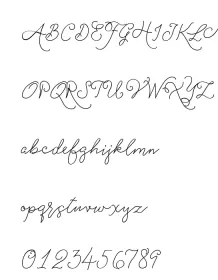 ABCDEFGHIJKL
OPQRSTUVWXYZ
abcdefghijklmn
opqrstuvwxyz
0123456789